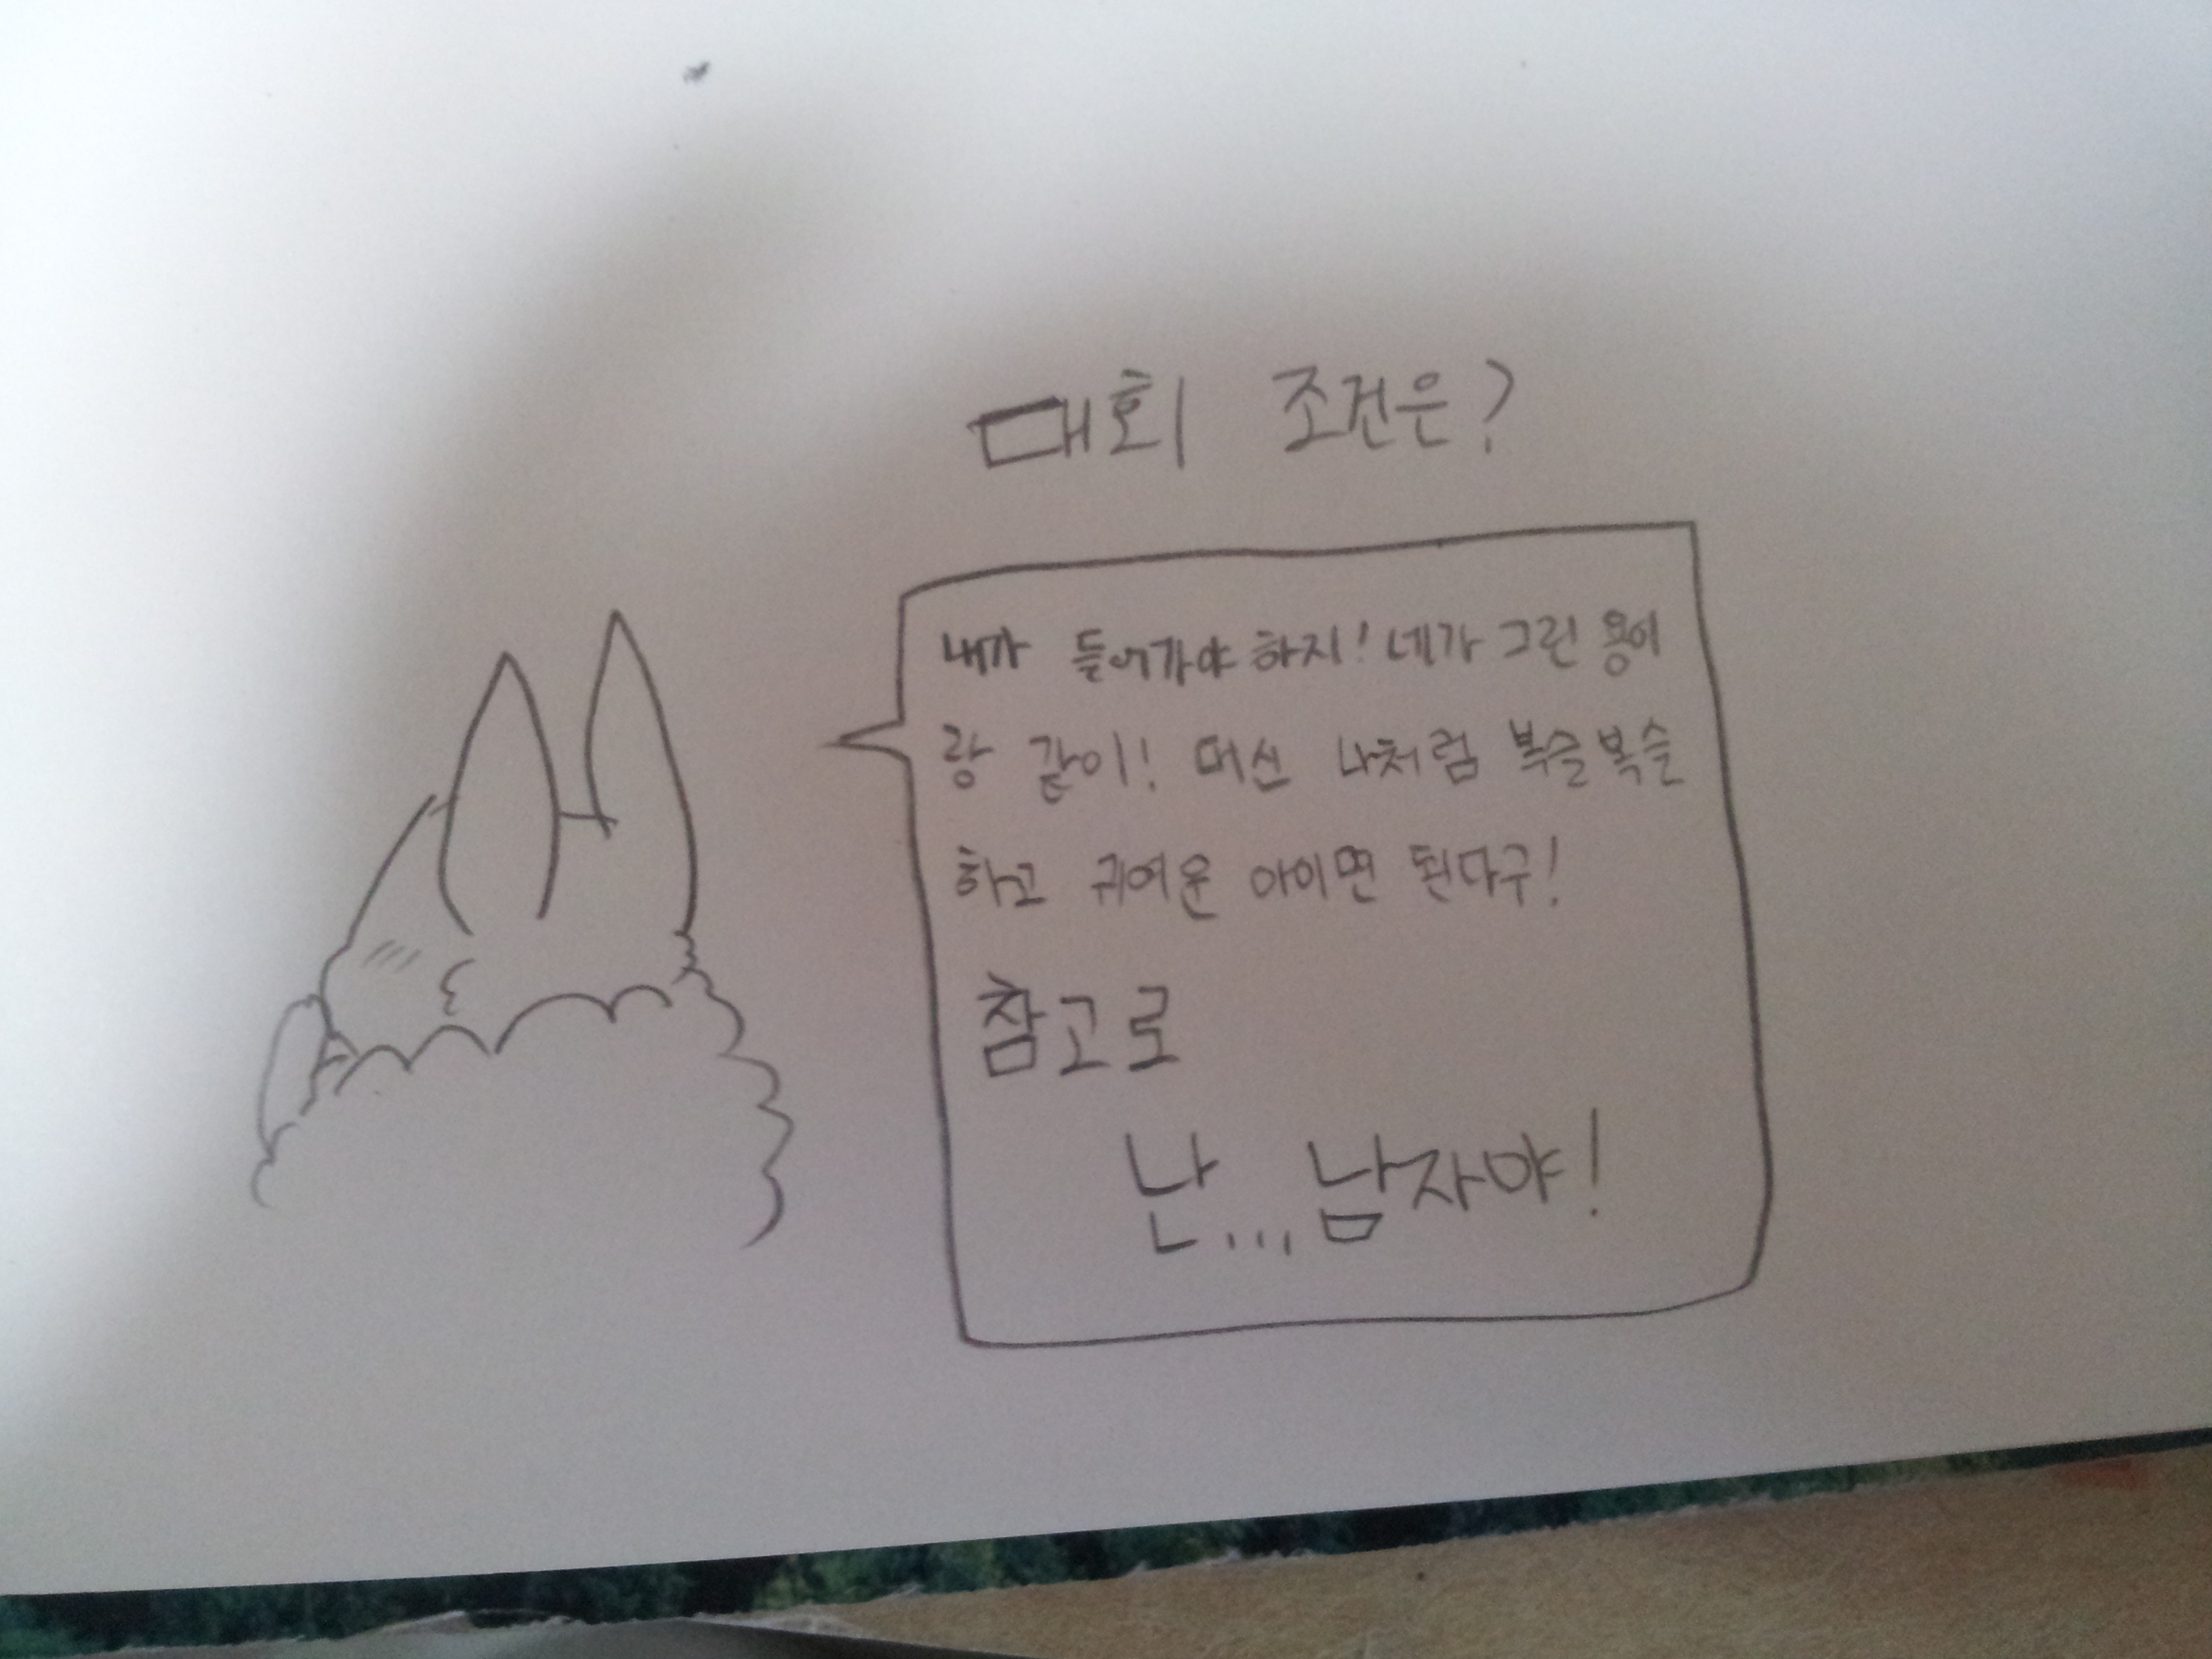 대회 조건은?
내가 들어가야 하지! 네가 그린 용이
랑 같이! 대신 나처럼 복슬복슬
하고 귀여운 아이면 된다구!
참고로
난... 남자야!